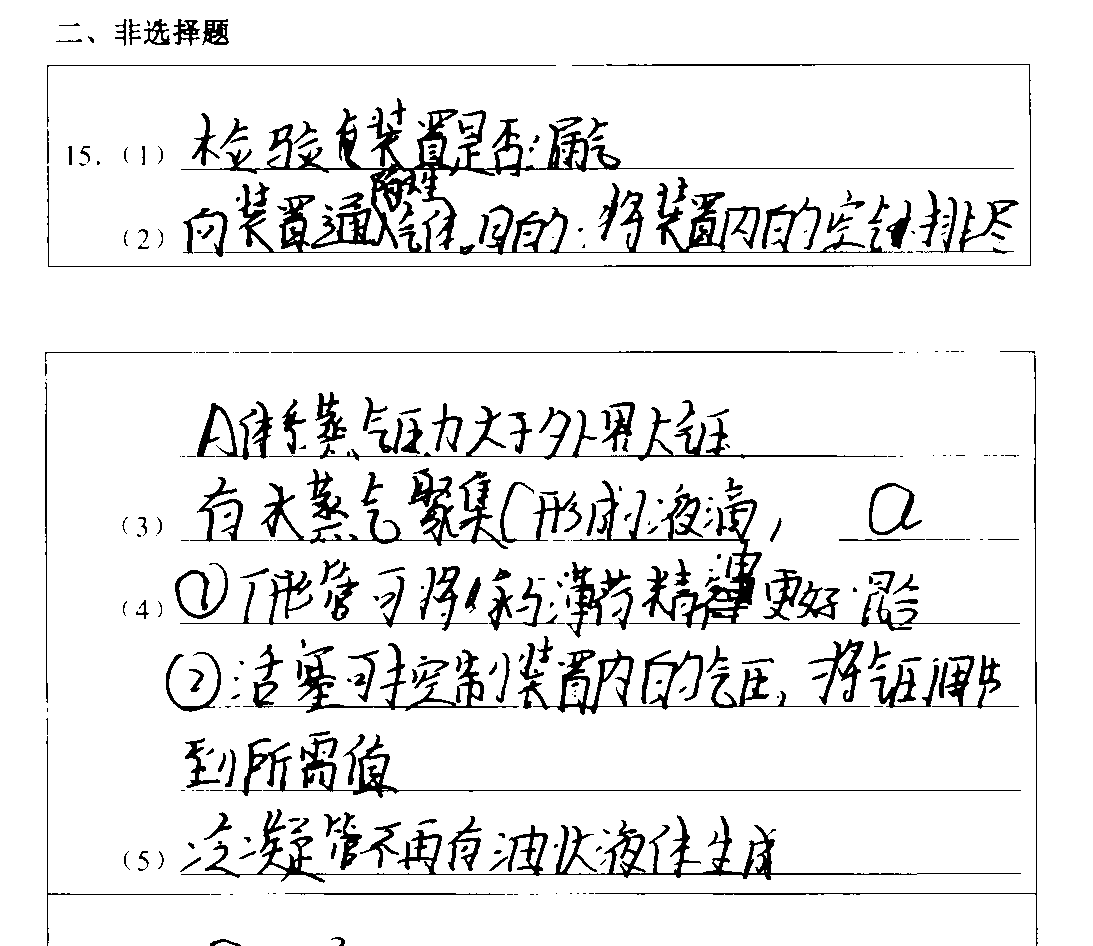 二、非选择题
15.（1）检验装置是否漏气
（2）向装置通入惰性气体。目的：将装置内的空气排尽
A体系蒸气压力大于外界大气压
（3）有水蒸气聚集（形成）液滴， a
（4）①T形管可将和薄荷精油更好混合
②活塞可控制装置内的气压，将气压调节
到所需值
（5）冷凝管不再有油状液体生成